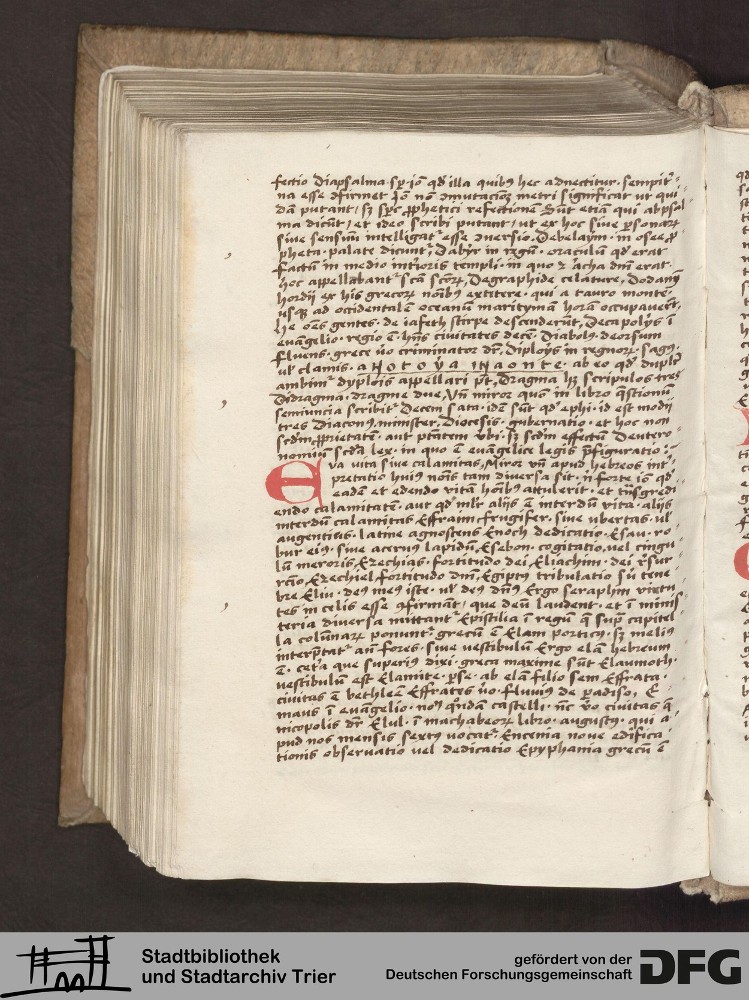 fectio Diapsalma. sp̄ iō qd illa quibꝰ hec adnectitur. sempit̄
na esse ꝯfirmet Iō nō ꝯmutacioꝫ metri significat ut qui
dā putant / sꝫ spc ꝓphetici refectionē Sūt etiā qui ab psal
ma dicūt / et ideo scribi putant / ut ex hoc siue ꝑsonarꝝ
siue sensuū intelligatᷣ esse diuersio. Debelaym. in osee ꝓ
pheta. palate dicuntᷣ, Dabyr in regū. oraculū qd erat
factū in medio int̄ioris templi. in quo ⁊ archa dnī erat.
hoc appellabantᷣ scā scōꝝ, De graphide celature, Dodanÿ
hordii ex his grecoꝝ noībꝰ extitere. qui a tauro monte.
usqꝫ ad occidentalē oceanū maritymam horā occupauerūt,
he oēs gentes. de iafeth stirpe descenderūt, Decapolÿs ī
euāgelio. regio ē. hn̄s ciuitates decē. Diabolꝰ. deorsum
fluens. grece v̄o criminator dr̄, Diploÿs in regnoꝝ. sagꝰ.
ul clamis. ab eo qd duplr̄
ambiūtᷣ dyploïs appellari pt̄, Dragma hꝫ scripulos tres
Didragma. dragme due, Vn̄ miror quō in libro q̄stionū
semiuncia scribitᷣ Decem sata. idē sūt qd ephi. id est modii
tres Diaconꝰ, minister, Diocesis. gubernatio. et hoc non
scdm̄ ꝓprietatē. aut ptātem v̄bi. sꝫ scdm̄ effectū Deutero
nomiū scdā lex. in quo ē euāgelice legis p̄figuratio.
Eua uita siue calamitas, Miror vn̄ apud hebreos int̄
pretatio huiꝰ nois tam diuersa sit. n̄ forte iō qd
eadē et edendo vitā hoībꝰ attulerit. et tn̄sgredi
endo calamitatē. aut qd mlr̄ aliis ē interdū vita. aliis
interdū calamitas Effraim frugifer. siue ubertas. ul
augentiꝰ. latine agnoscens Enoch dedicatio Esau. ro
bur eiꝰ. siue aceruꝰ lapidū, Esebon. cogitatio, vel cingu
lū meroris Ezechias. fortitudo dei, Eliachim. dei r̄sur
rc̄io, Ezechiel fortitudo dnī, Egiptꝰ tribulatio sū tene
bre Eliu. deꝰ meꝰ iste. ul deꝰ dnꝰ Ergo seraphin virtu
tes in celis esse ꝯfirmāt / que deū laudent. et ī minis
teria diuersa mittantᷣ Epistilia ī regū q̄ supᷓ capitel
la colūnarꝝ ponuntᷣ. grecū ē Elam porticꝰ. sꝫ meliꝰ
interp̄tatᷣ an̄ fores. siue uestibulū Ergo elā hebreum
ē. cetᷓa que superiꝰ dixi. greca maxime sūt Elaumoth.
uestibulū est Elamite. ꝑse. ab elā filio sem Effrata.
ciuitas ē bethleē Effrates v̄o. fluuiꝰ de ꝑadiso, E
maus ī euāgelio. nomꝰ q̄ndā castelli. nc̄ v̄o ciuitas q̄
nicopolis dr̄ Elul. ī machabeoꝝ libro. augustꝰ. qui a
pud nos mensis sextꝰ uocatᷣ. Encenia noue edifica
tionis obseruatio uel dedicatio Epyphania grecū ē
Stadtbibliothek
und Stadtarchiv Trier
gefördert von der
Deutschen Forschungsgemeinschaft
DFG